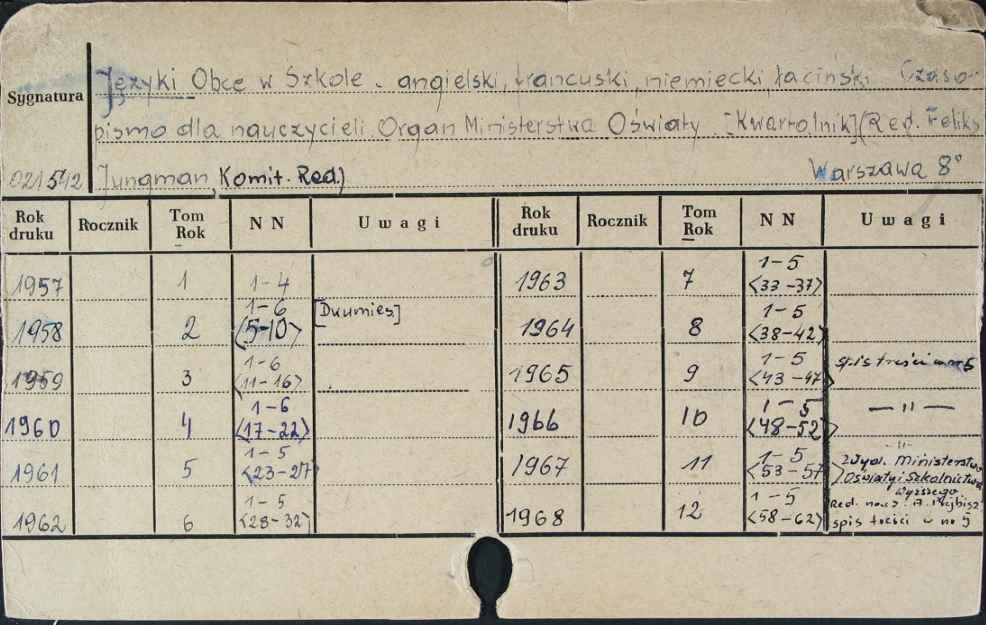 Języki Obce w Szkole. angielski, francuski, niemiecki, łaciński. Czaso-
Sygnatura
pismo dla nauczycieli. Organ Ministerstwa Oświaty. [Kwartalnik] (Red. Feliks
021542 Jungman, Komit. Red.) Warszawa 8°
Rok druku Rocznik Tom Rok N N Uwagi Rok druku Rocznik Tom Rok N N Uwagi
1957 1 1-4 1963 7 1-5 <33-37>
1958 2 1-6 <5-10> [Dwumies.] 1964 8 1-5 <38-42>
1959 3 1-6 <11-16> 1965 9 1-5 <43-47> spis treści w nr 5
1960 4 1-6 <17-22> 1966 10 1-5 <48-52> — " —
1961 5 1-5 <23-27> 1967 11 1-5 <53-57> - " -
Wyd. Ministerstwo
Oświaty i Szkolnictwa
Wyższego
1962 6 1-5 <28-32> 1968 12 1-5 <58-62> Red. nacz. A.
spis treści w nr 5